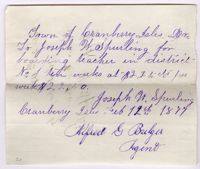 Town of Cranberry Isles Dr.
To Joseph W. Spurling for
boarding teacher in district
No 1 weeks at $2.25 per
week $22.50.
Joseph W. Spurling
Cranberry Isles Feb 12th 1877
Alfred G Bulger
Agent